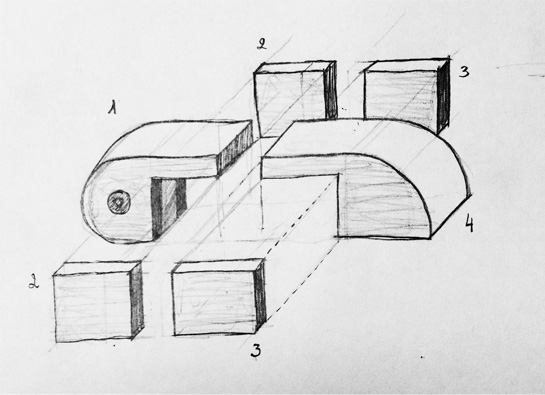 2
3
1
4
2
3